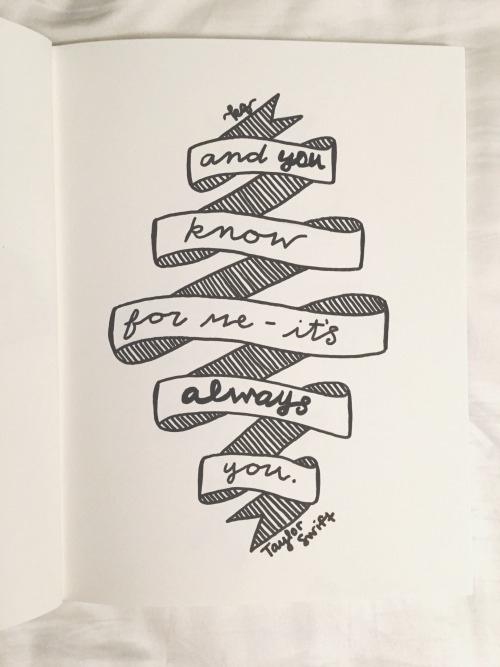 and you
know
for me - it's
always
you.
Taylor
Swift